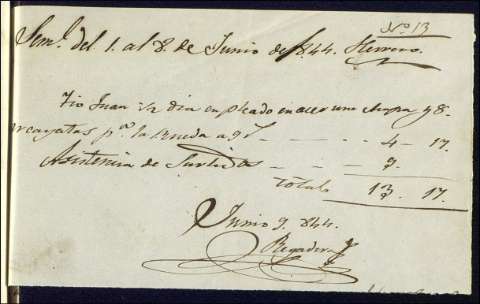 Nº 13
Sem.ª del 1. al 8. de Junio de 1844. Herrero.
Tio Juan ½ dia empleado en acer una chapa y 8.
rcayatas p.ª la Rueda a 9 - - - 4 - 17.
Asistencia de - - - 9.
total 13. 17.
Junio 9. 844.
Regader